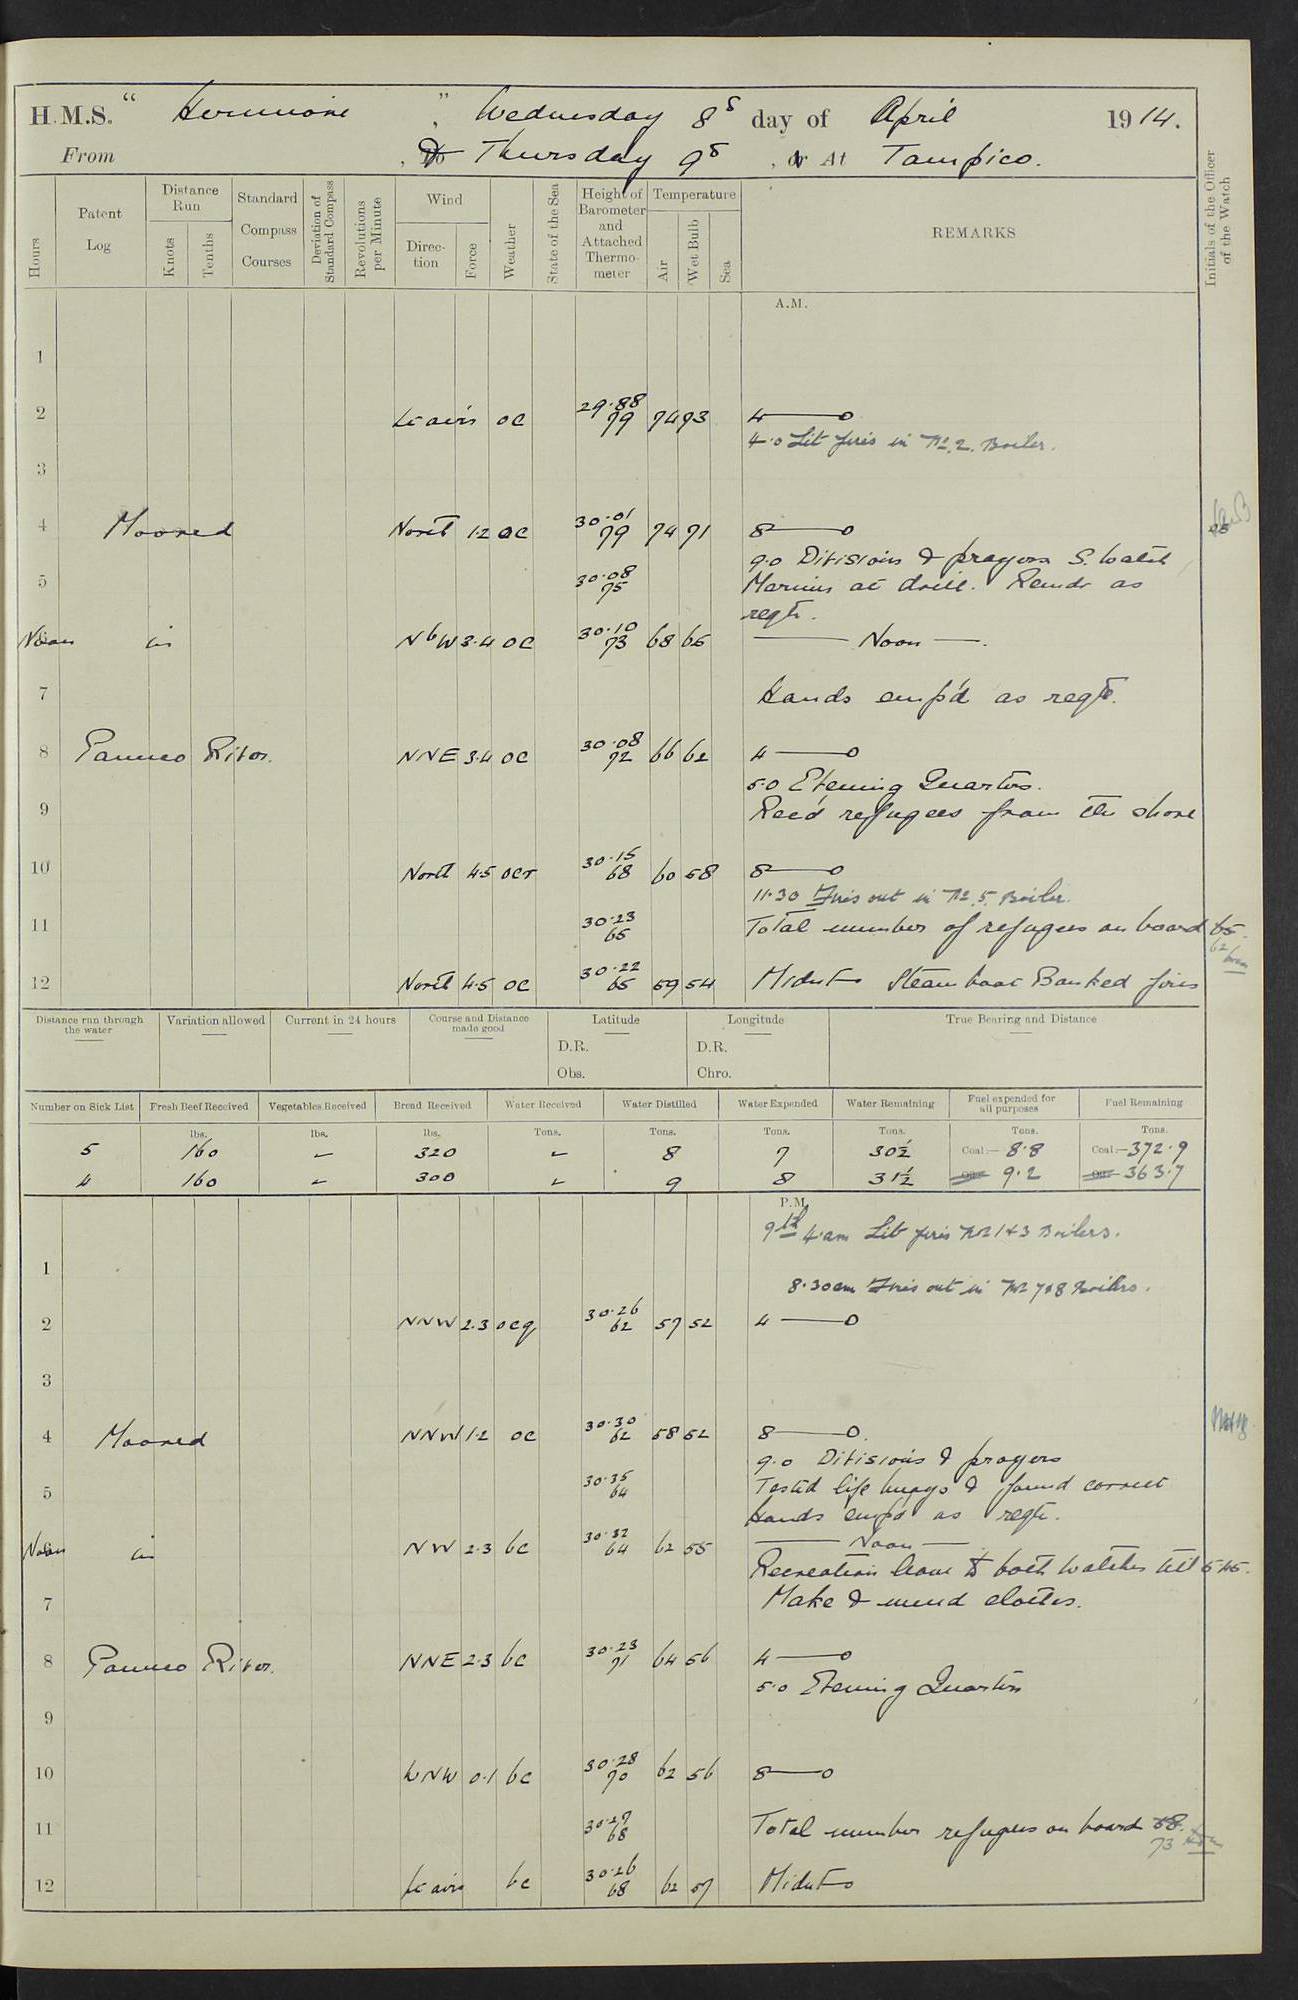 H.M.S. " Hermione ", Wednesday 8th day of April 1914.
From , To Thursday 9th , or At Tampico.
Hours
Patent Log
Distance Run
Knots
Tenths
Standard Compass Courses
Deviation of Standard Compass
Revolutions per Minute
Wind
Direction
Force
Weather
State of the Sea
Height of Barometer and Attached Thermometer
Temperature
Air
Wet Bulb
Sea
REMARKS
Initials of the Officer of the Watch
A.M.
1
2 Lt airs oc 29.88 79 74 73 4 —— 0
4.0 Lit fires in No. 2. Boiler.
3
4 Moored North 1.2 oc 30.01 79 74 71 8 —— 0
9.0 Divisions & prayers S. Watch
5 30.08 75 Marines at drill. Remdr as
reqte.
Noon in N b W 3.4 oc 30.10 73 68 65 —— Noon ——.
7 Hands emp'd as reqte.
8 Panuco River. NNE 3.4 oc 30.08 72 66 62 4 —— 0
5.0 Evening Quarters.
9 Rec'd refugees from the shore
10 North 4.5 ocr 30.15 68 60 58 8 —— 0
11.30 Fires out in No. 5. Boiler.
11 30.23 65 Total number of refugees on board 65.
62
12 North 4.5 oc 30.22 65 59 54 Midnt Steam boat Banked fires
Distance run through the water
Variation allowed
Current in 24 hours
Course and Distance made good
Latitude
D.R.
Obs.
Longitude
D.R.
Chro.
True Bearing and Distance
Number on Sick List Fresh Beef Received Vegetables Received Bread Received Water Received Water Distilled Water Expended Water Remaining Fuel expended for all purposes Fuel Remaining
lbs. lbs. lbs. Tons. Tons. Tons. Tons. Tons. Tons.
5 160 – 320 – 8 7 30½ Coal:– 8.8 Coal:– 372.9
4 160 – 300 – 9 8 31½ Oil:– 9.2 Oil:– 363.7
P.M.
9th 4.am Lit fires No 1 & 3 Boilers.
1
8.30am Fires out in No 7 & 8 Boilers.
2 NNW 2.3 ocq 30.26 62 57 52 4 —— 0
3
4 Moored NNW 1.2 oc 30.30 62 58 52 8 —— 0.
9.0 Divisions & prayers
5 30.35 64 Tested life buoys & found correct
Hands emp'd as reqte.
Noon in NW 2.3 bc 30.32 64 62 55 —— Noon ——
Recreation leave to both watches till 5.45.
7 Make & mend clothes.
8 Panuco River. NNE 2.3 bc 30.23 71 64 56 4 —— 0
5.0 Evening Quarters
9
10 WNW 0.1 bc 30.28 70 62 56 8 —— 0
11 30.27 68 Total number refugees on board 68.
73
12 Lt airs bc 30.26 68 62 57 Midnt